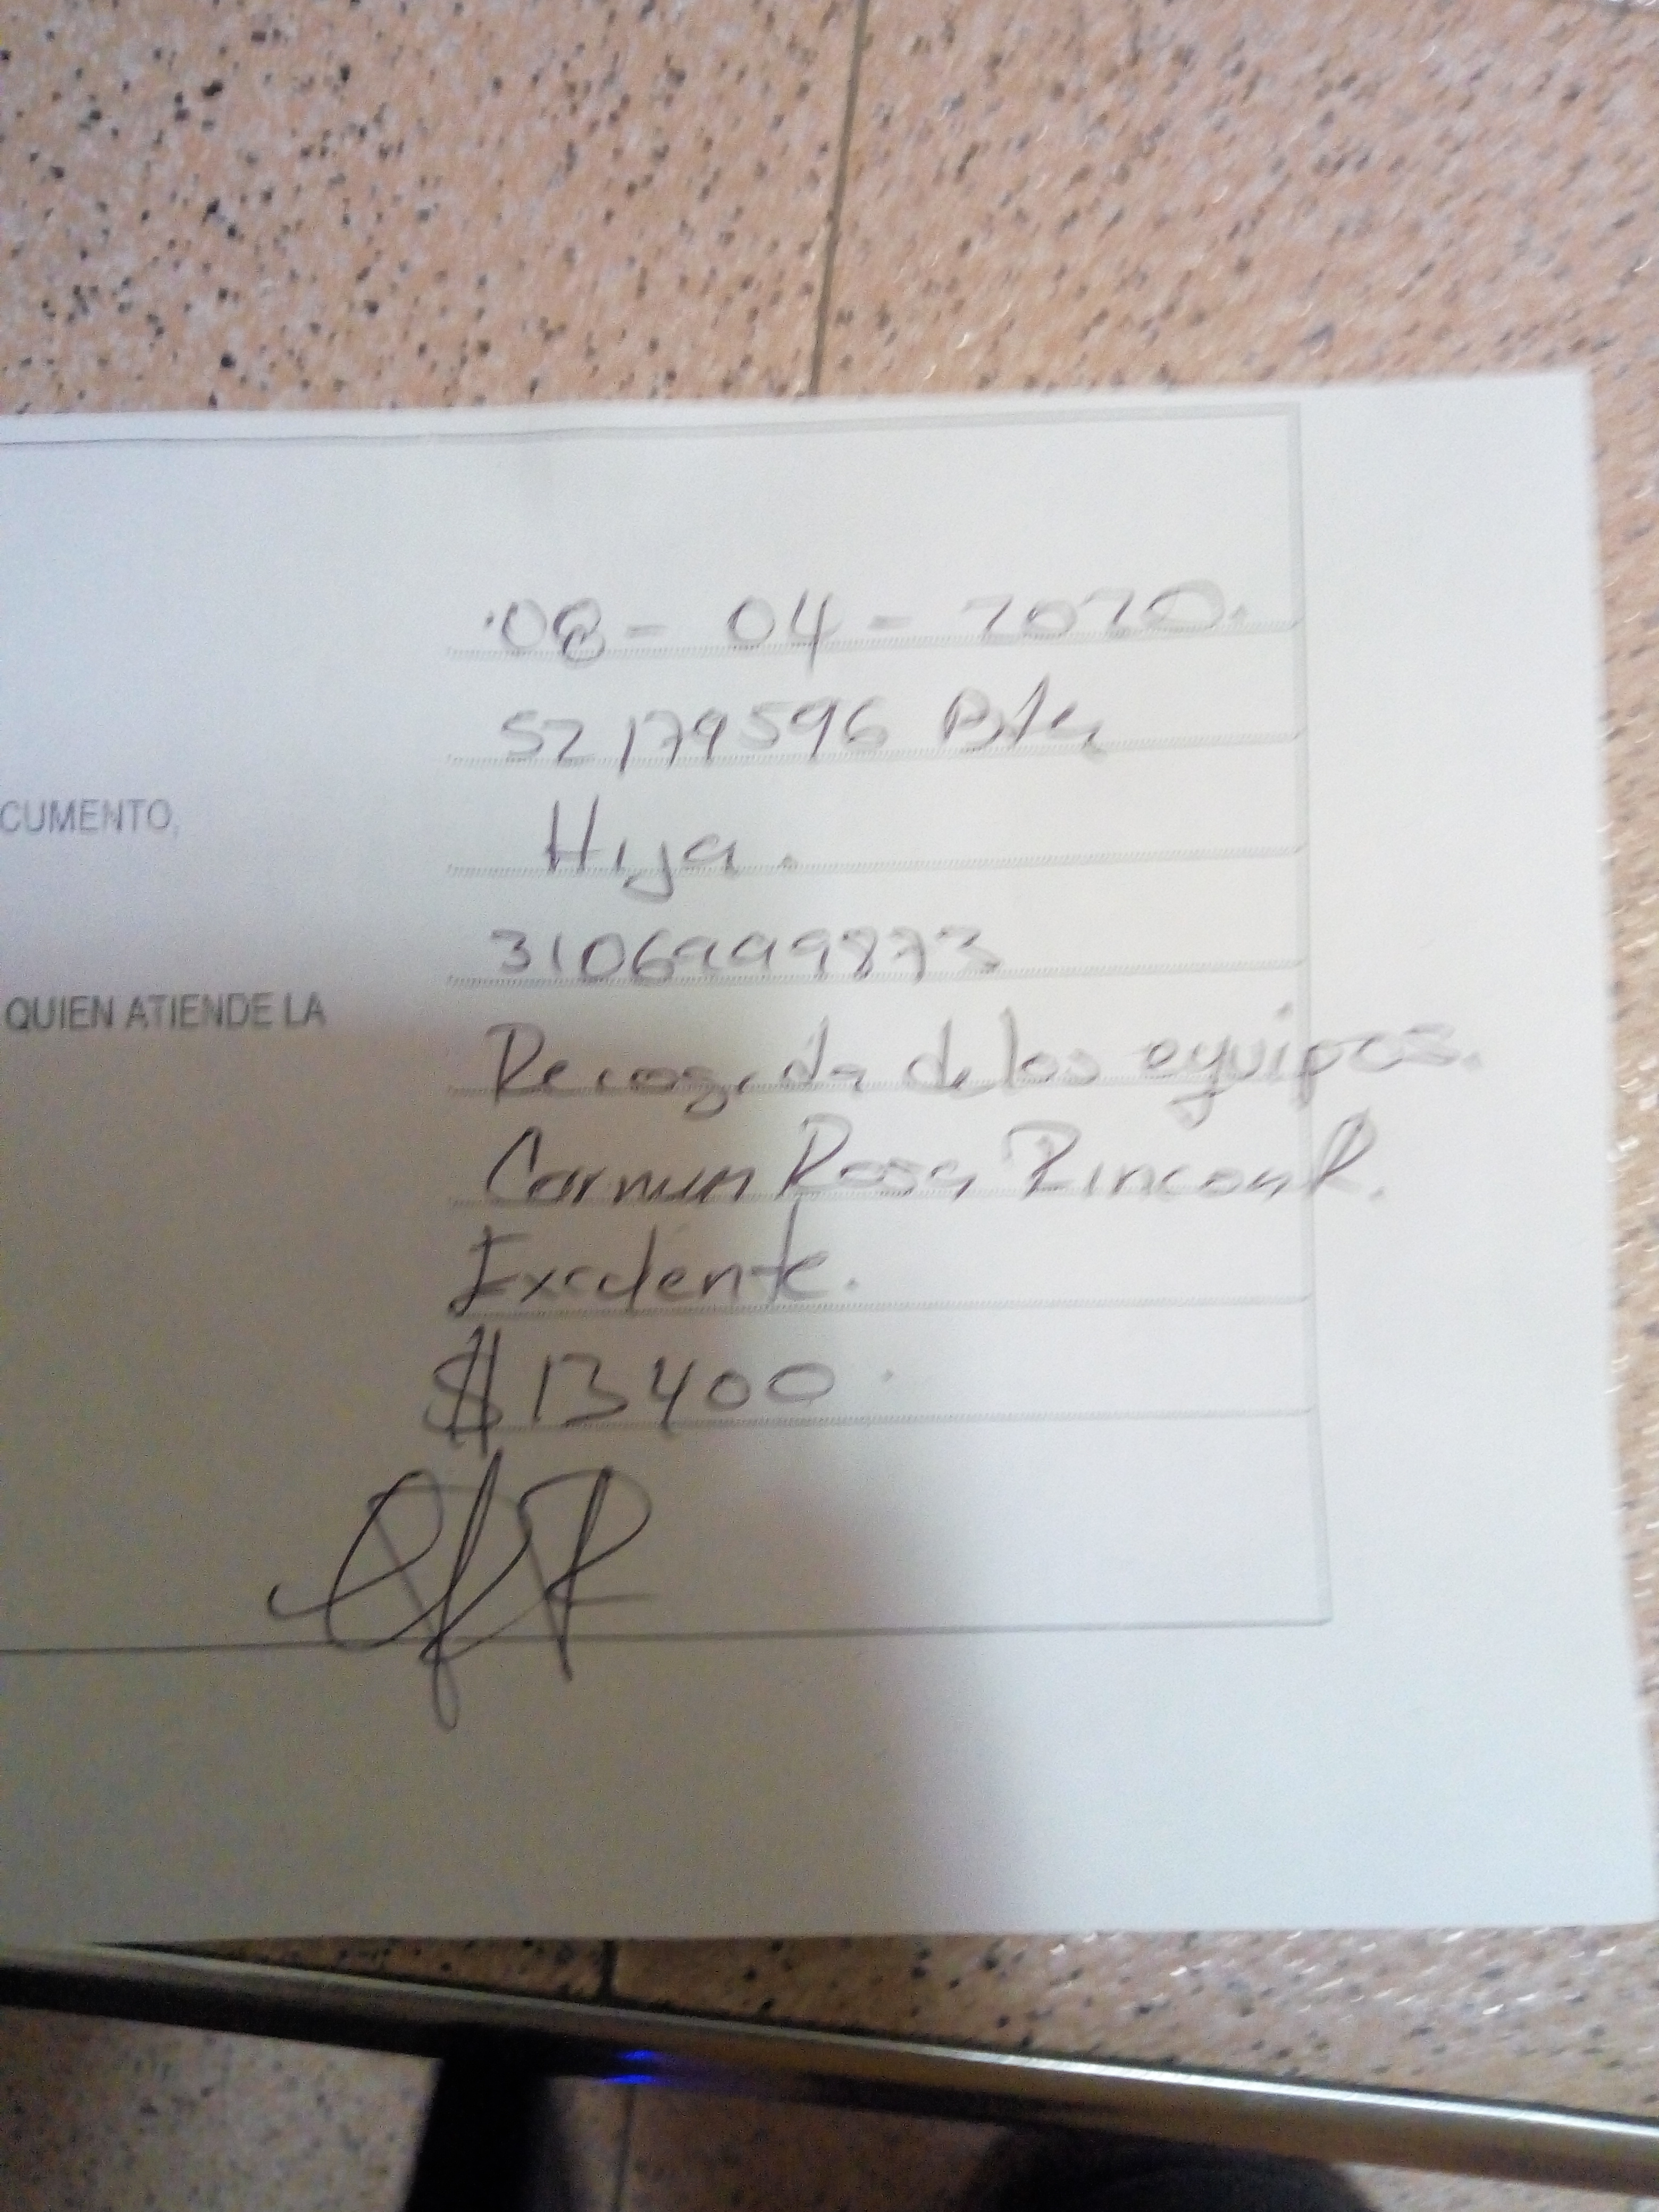 08 - 04 - 2020.
52179596 Bta
CUMENTO,
Hija.
3106999873
QUIEN ATIENDE LA
Recogida de los equipos.
Carmen Rosa Rincon R.
Exelente.
$ 13400